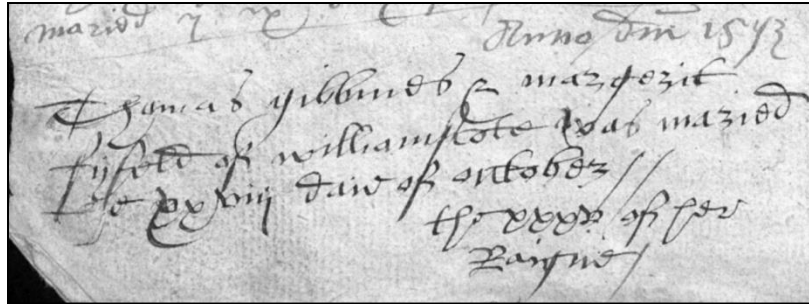 maried
Anno dm 1593
Thomas gibbines & margerit
fifeld of williamscote was maried
the xxviij daie of october
the xxxv of her
Raigne